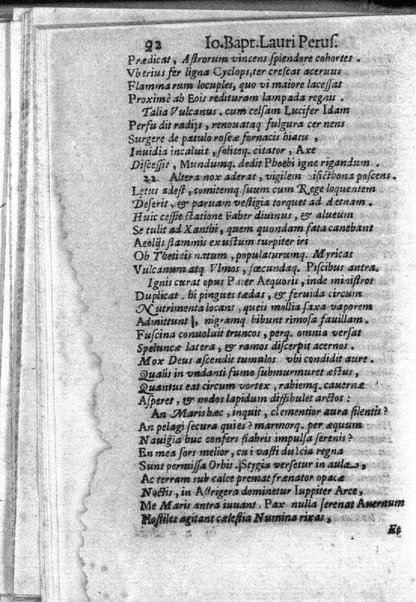 92 Io. Bapt. Lauri Perus.
Prædicat, Astrorum vincens splendore cohortes.
Vberius fer ligna Cyclops, ter crescat aceruus
Flammarum locuples, quo vi maiore lacessat
Proximè ab Eois redituram lampada regnis.
Talia Vulcanus. cum celsam Lucifer Idam
Perfudit radijs, renouataq fulgura cernens
Surgere de patulo roseæ fornacis hiatu,
Inuidia incaluit, solitoq. citatior, Axe
Discessit, Mundumq. dedit Phoebi igne rigandum.
22. Altera nox aderat, vigilem poscens.
Letus adest, comitemq; suum cum Rege loquentem
Deserit, & paruam vestigia torquet ad Aetnam.
Huic cessit statione Faber diuinus, & alueum
Se tulit ad Xanthi, quem quondam fata canebant
Aeolijs flammis exustum turpiter iri
Ob Thetidis natum, populaturumq. Myricas
Vulcanum atq Vlmos, fœcundaq. Piscibus antra.
Ignis curat opus Pater Aequoris, inde ministros
Duplicat. hi pingues tædas, & feruida circum
Nutrimenta locant, queis mollia saxa vaporem
Admittunt, nigramq. bibunt rimosa fauillam.
Fuscina conuoluit truncos, perq. omnia versat
Speluncæ latera, & ramos discerpit acernos.
Mox Deus ascendit tumulos vbi condidit aure.
Qualis in vndanti fumo submurmuret æstus,
Quantus eat circum vortex, rabiemq. cauernæ
Asperet, & nodos lapidum diffibulet arctos:
An Maris hæc, inquit, clementior aura silentis?
An pelagi secura quies? marmorq. per æquum
Nauigia huc confers flabris impulsa serenis?
En mea sors melior, cui vasti dulcia regna
Sunt permissa Orbis. Stygia versetur in aula,
Ac terram sub calce premat frænator opacæ
Noctis, in Astrigera dominetur Iuppiter Arce,
Me Maris antra iuuant. Pax nulla serenat Auernum
Hostiles agitant cælestia Numina rixas,
Et